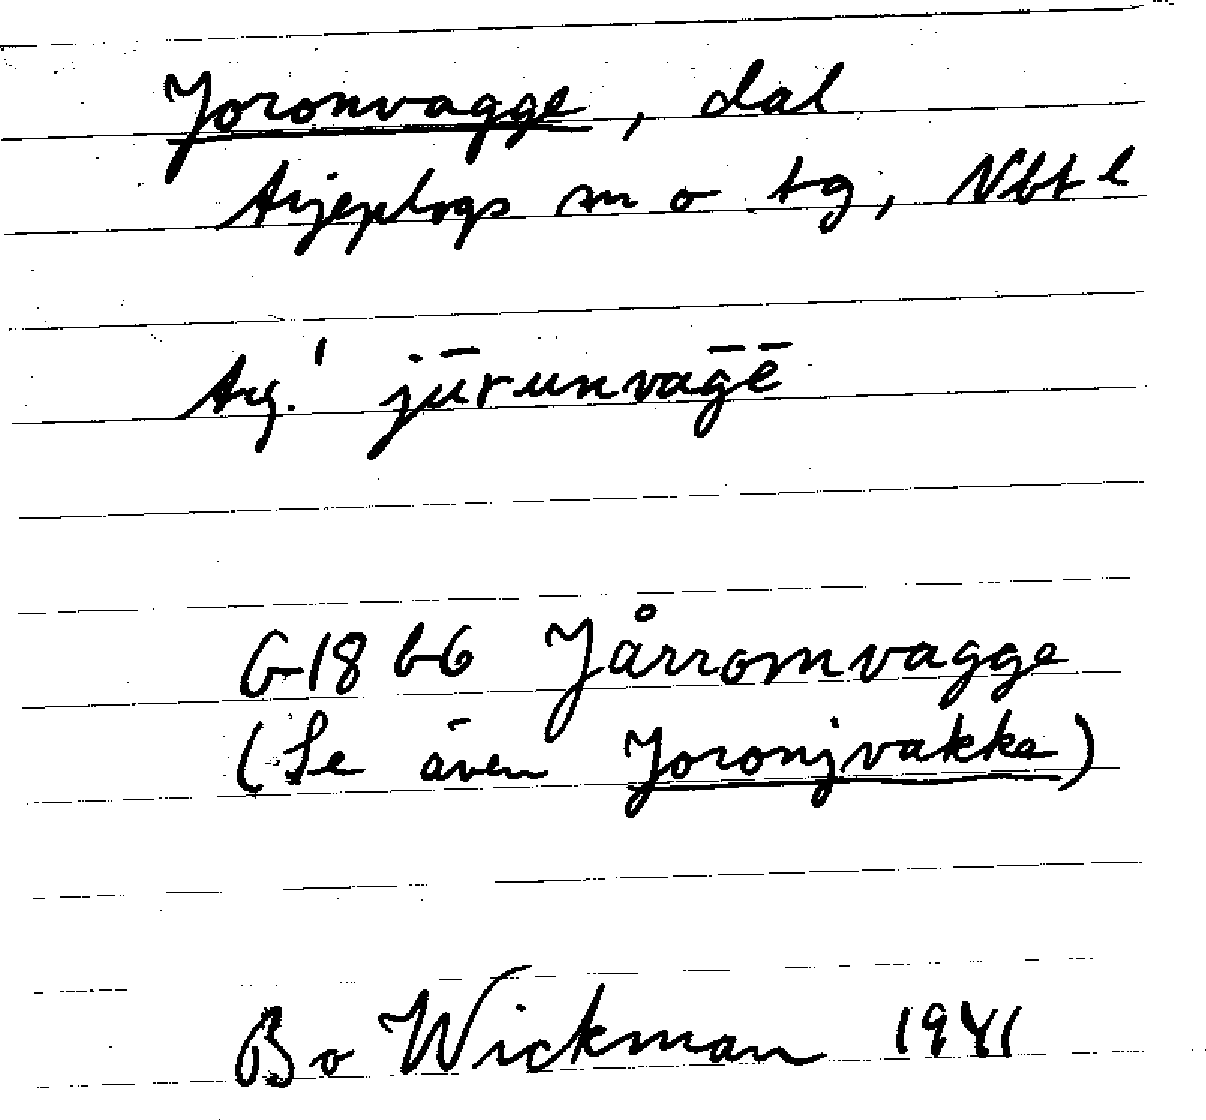 Joronvagge, dal
Arjeplogs sn o tg, Nbt l
Arj. ˈjūrunvāgē
G18 b6 Jårromvagge
(Se även Joronjvakke)
Bo Wickman 1941